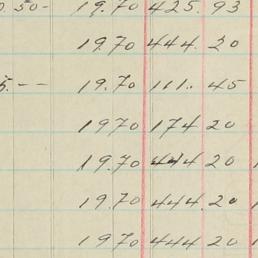 0.50- 19.70 425.93
19.70 444.20
5.-- 19.70 111.45
1970 174 20
19.70 444 20
19.70 444.20
1970 444 20